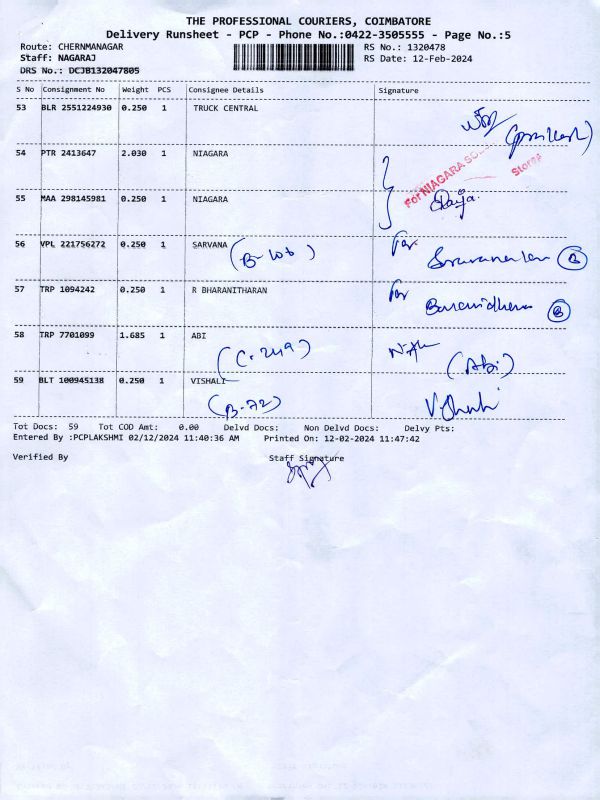 THE PROFESSIONAL COURIERS, COIMBATORE
Delivery Runsheet - PCP - Phone No.:0422-3505555 - Page No.:5
Route: CHERNMANAGAR RS No.: 1320478
Staff: NAGARAJ RS Date: 12-Feb-2024
DRS No.: DCJB132047805
S No Consignment No Weight PCS Consignee Details Signature
53 BLR 2551224930 0.250 1 TRUCK CENTRAL
54 PTR 2413647 2.030 1 NIAGARA
For NIAGARA
Stores
55 MAA 298145981 0.250 1 NIAGARA
56 VPL 221756272 0.250 1 SARVANA For
(B-106) B
57 TRP 1094242 0.250 1 R BHARANITHARAN For
B
58 TRP 7701099 1.685 1 ABI
(C-249) (Abi)
59 BLT 100945138 0.250 1 VISHALI
(B-72)
Tot Docs: 59 Tot COD Amt: 0.00 Delvd Docs: Non Delvd Docs: Delvy Pts:
Entered By :PCPLAKSHMI 02/12/2024 11:40:36 AM Printed On: 12-02-2024 11:47:42
Verified By Staff Signature